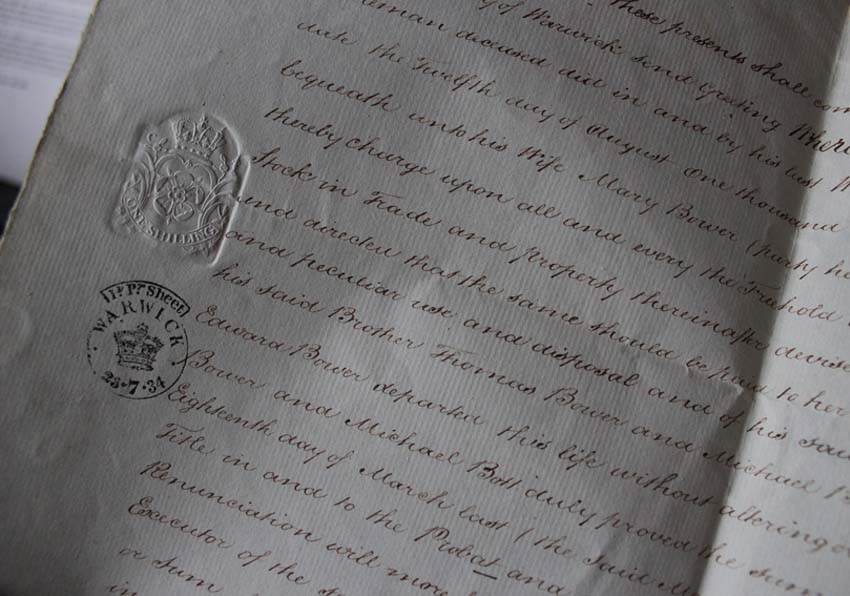 of Warwick send Greeting Where
These presents shall com
deceased did in and by his last W
date the Twelfth day of August One thousand
bequeath unto his Wife Mary Bower (party he
thereby charge upon all and every the Freehold
Stock in Trade and property thereinafter devise
and directed that the same should be paid to her
and peculiar use and disposal and of his said
his said Brother Thomas Bower and Michael B
Edward Bower departed this life without altering o
Bower and Michael Bott duly proved the same
Eighteenth day of March last (the said M
Title in and to the Probat and
Renunciation will more
Executor of the s
or sum
in
ONE SHILLING
11d Pr Sheet
WARWICK
23·7·34